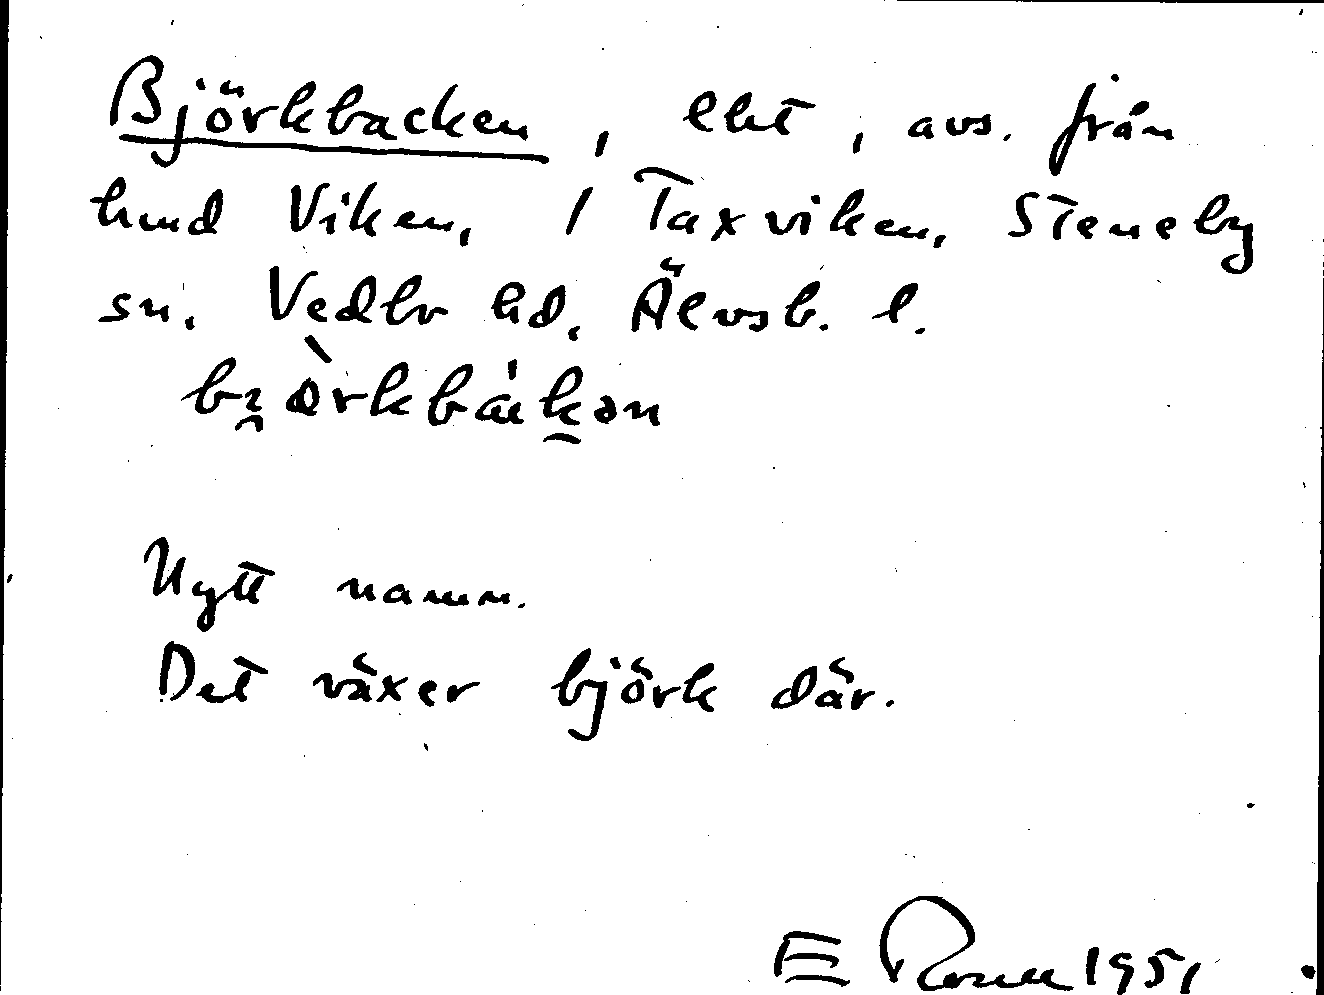 Björkbacken, lht, avs. från
hmd Viken, 1 Taxviken, Steneby
sn. Vedbo hd. Älvsb. l.
Nytt namn.
Det växer björk där.
E 1951